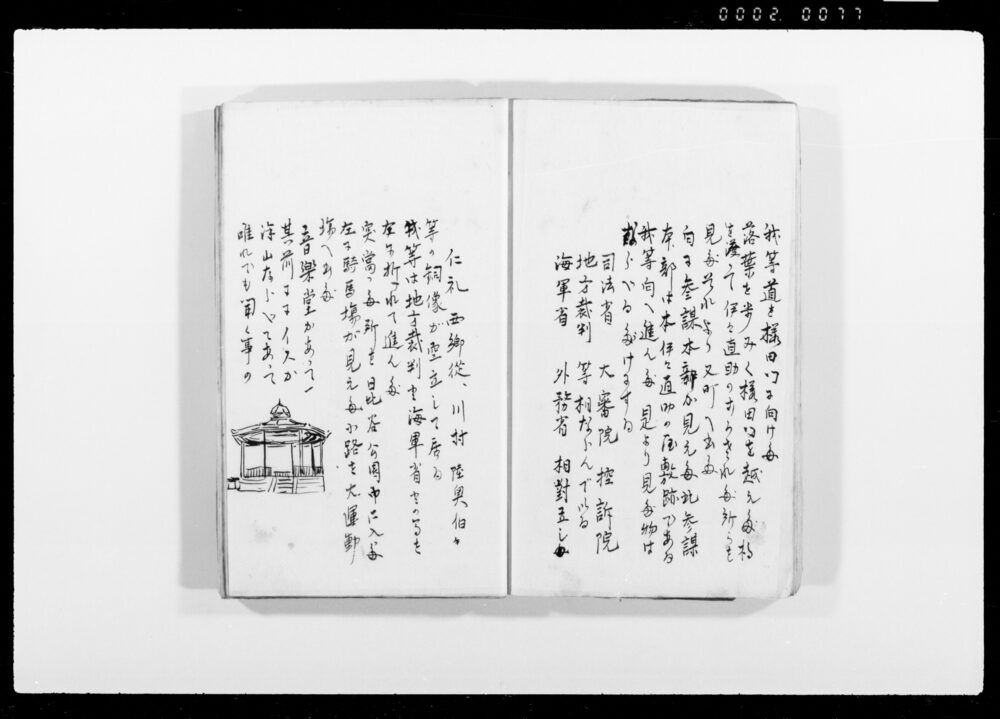 0002.0077
我等道を桜田門に向けた
落葉を歩みく桜田門を越えた. 松
を渡って伊々直助の
見たそれより又町へ出た
向に参謀本部が見えた此参謀
本部は本伊々直助の屋敷跡である
我等向へ進んだ 是より見た物は
だけます
司法省 大審院 控訴院
地方裁判 等相ならんで
海軍省 外務省 相對立した
仁礼 西郷従、川村 陸奥伯々
等の銅像が立して居る
我等は地方裁判や海軍省の間を
左に折れて進んだ
突當った所を日比谷公園中に入た
左に騎馬場が見えた小路を大運動
場へ出た
音楽堂があって
其前にはイスが
沢山ならべてあって
唯れでも聞く事の